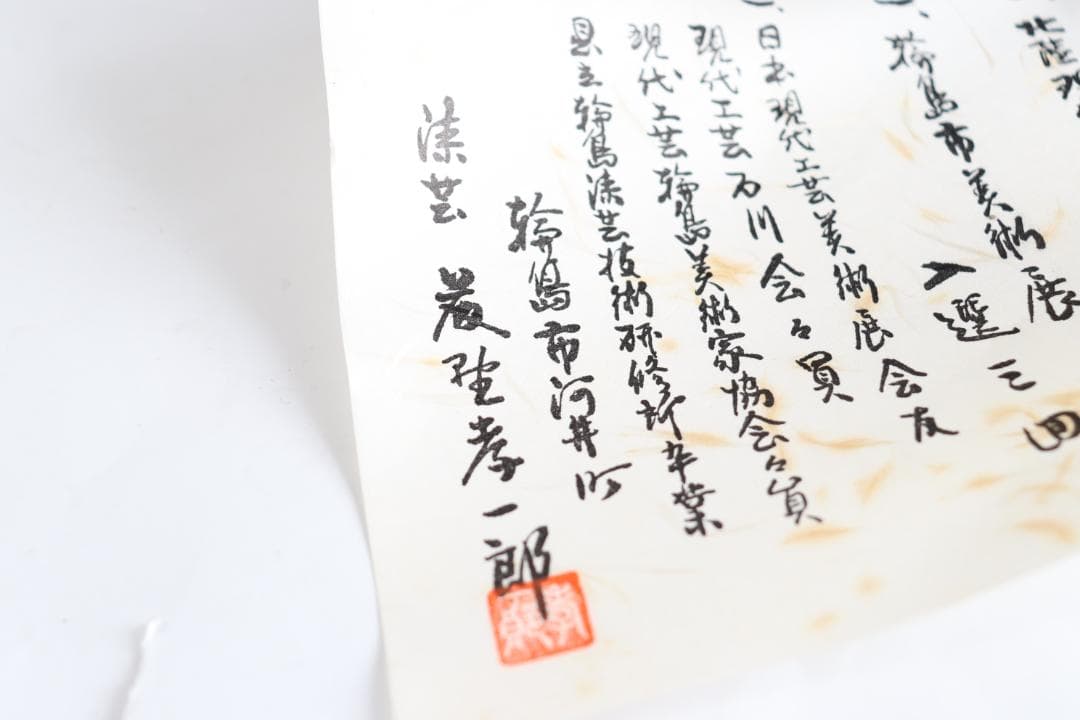 北陸現
、輪島市美術展入選三回
、日本現代工芸美術展会友
現代工芸石川会々員
現代工芸輪島美術家協会々員
県立輪島漆芸技術研修所卒業
輪島市河井町
漆芸 孝一郎